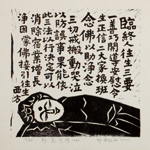 臨終人往生三要
一善巧開導安慰令
生正信二大家換班
念佛以助淨念
三切戒搬動哭泣
以防誤事果能依
此三法以行決定可以
消除宿業增長
淨因蒙佛接引往生
西方